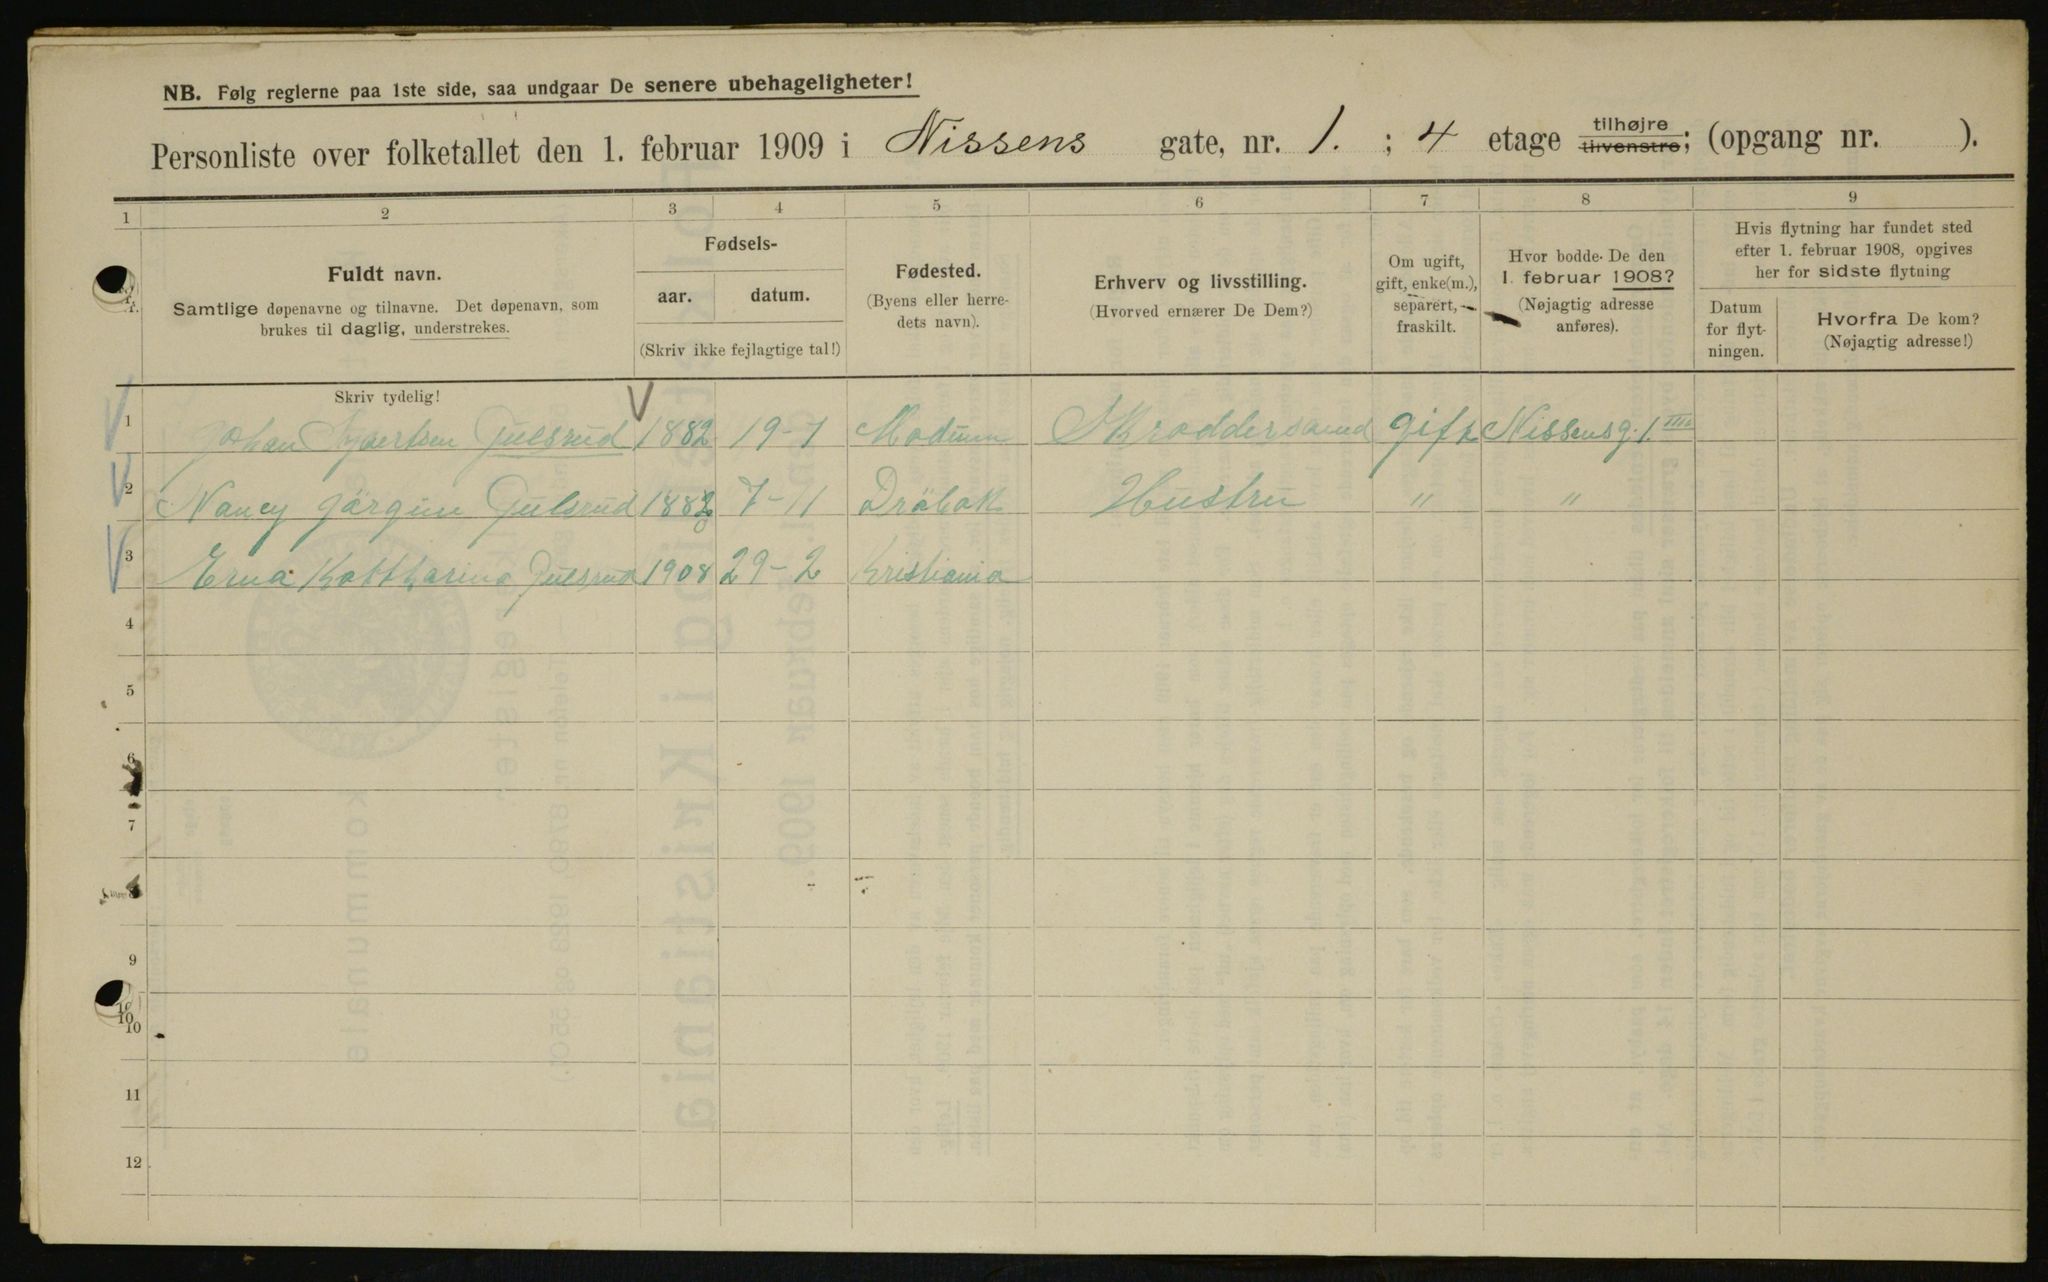 NB. Følg reglerne paa 1ste side, saa undgaar De senere ubehageligheter!
Personliste over folketallet den 1. februar 1909 i Nissens gate, nr. 1. ; 4 etage tilhøjre tilvenstre; (opgang nr. ).
1 2 3 4 5 6 7 8 9
Fuldt navn.
Samtlige døpenavne og tilnavne. Det døpenavn, som
brukes til daglig, understrekes.
Fødsels-
aar. datum.
(Skriv ikke fejlagtige tal!)
Fødested.
(Byens eller herre-
dets navn).
Erhverv og livsstilling.
(Hvorved ernærer De Dem?)
Om ugift,
gift, enke(m.),
separert,
fraskilt.
Hvor bodde De den
1. februar 1908?
(Nøjagtig adresse
anføres).
Hvis flytning har fundet sted
efter 1. februar 1908, opgives
her for sidste flytning
Datum
for flyt-
ningen.
Hvorfra De kom?
(Nøjagtig adresse!)
Skriv tydelig!
1 Johan Syvertsen Gulsrud 1882 19-1 Modum Skræddersvend gift Nissensg. 1. IIII
2 Nancy Jörgine Gulsrud 1882 7-11 Dröbak Hustru " "
3 Erna Kattharina Gulsrud 1908 29-2 Kristiania
4
5
6
7
8
9
10
11
12